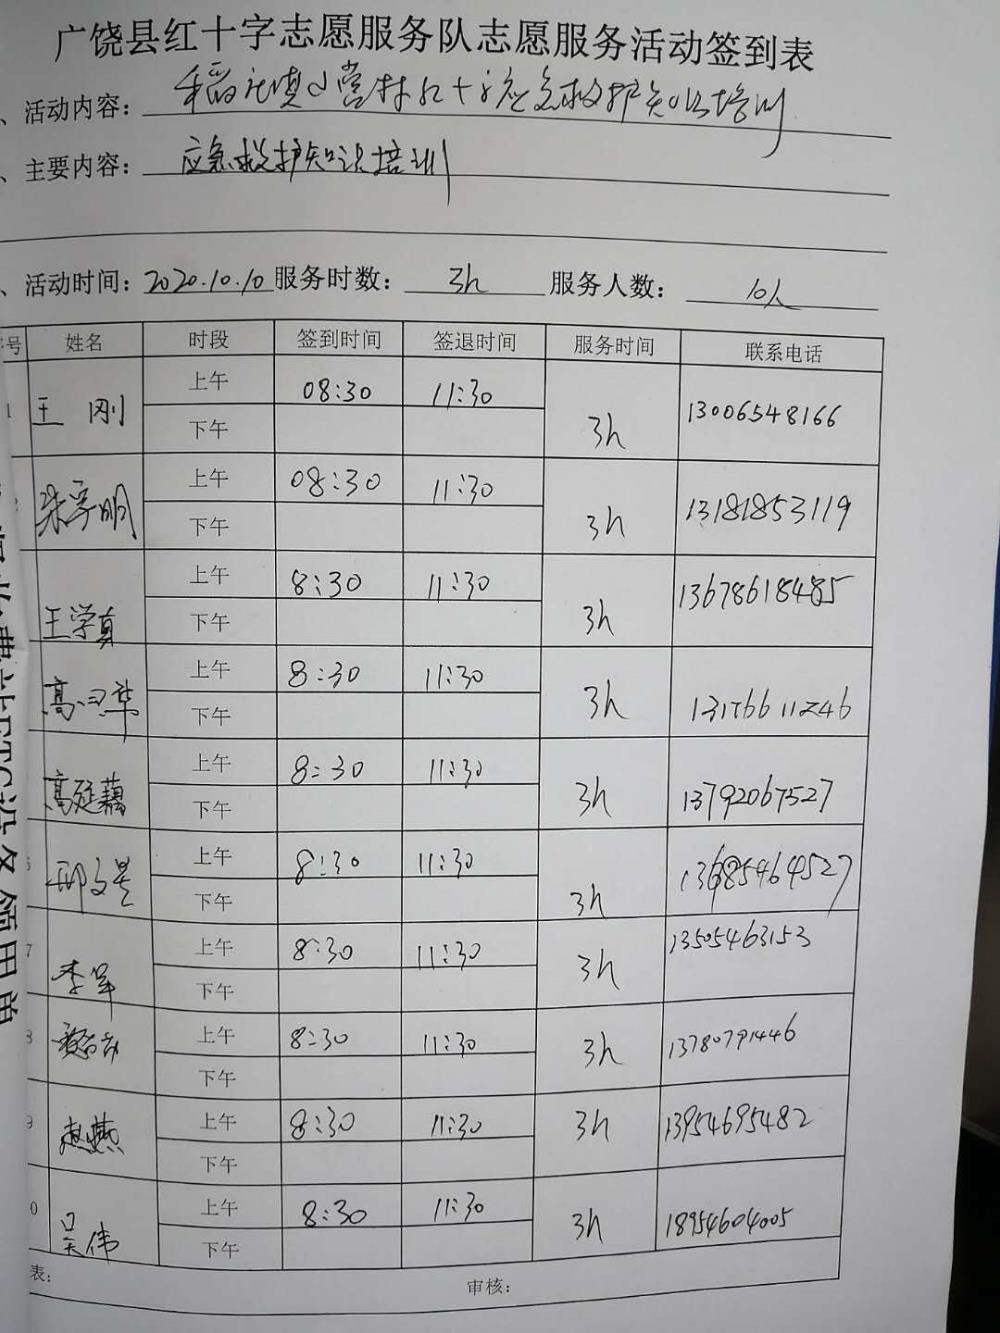 广饶县红十字志愿服务队志愿服务活动签到表
、活动内容：稻庄镇小营村红十字应急救护知识培训
、主要内容：应急救护知识培训
、活动时间：2020.10.10 服务时数：3h 服务人数：10人
号 姓名 时段 签到时间 签退时间 服务时间 联系电话
1 王刚 上午 08:30 11:30 3h 13006548166
下午
上午 08:30 11:30 3h 13181853119
下午
王学真 上午 8:30 11:30 3h 13678618485
下午
上午 8:30 11:30 3h 13176611246
下午
高延藕 上午 8:30 11:30 3h 13792067527
下午
上午 8:30 11:30 3h
下午
7 李军 上午 8:30 11:30 3h 13505463153
下午
上午 8:30 11:30 3h 13780791446
下午
9 赵燕 上午 8:30 11:30 3h 13954695482
下午
0 吴伟 上午 8:30 11:30 3h 18954604005
下午
表： 审核：